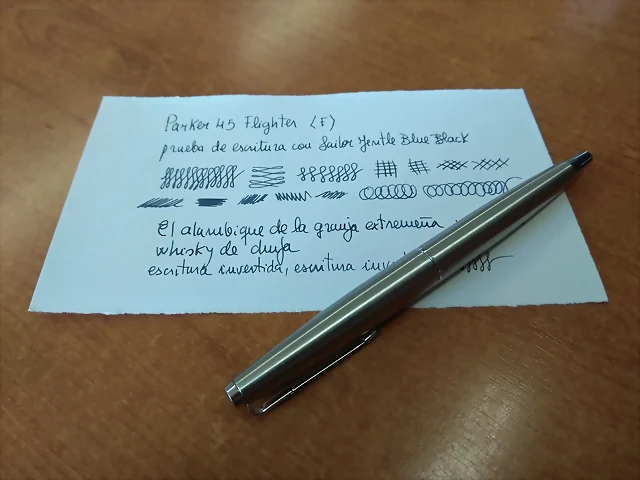 Parker 45 Flighter (F)
prueba de escritura con Sailor Jentle Blue Black
El alambique de la granja extremeña
whisky de
escritura invertida, escritura